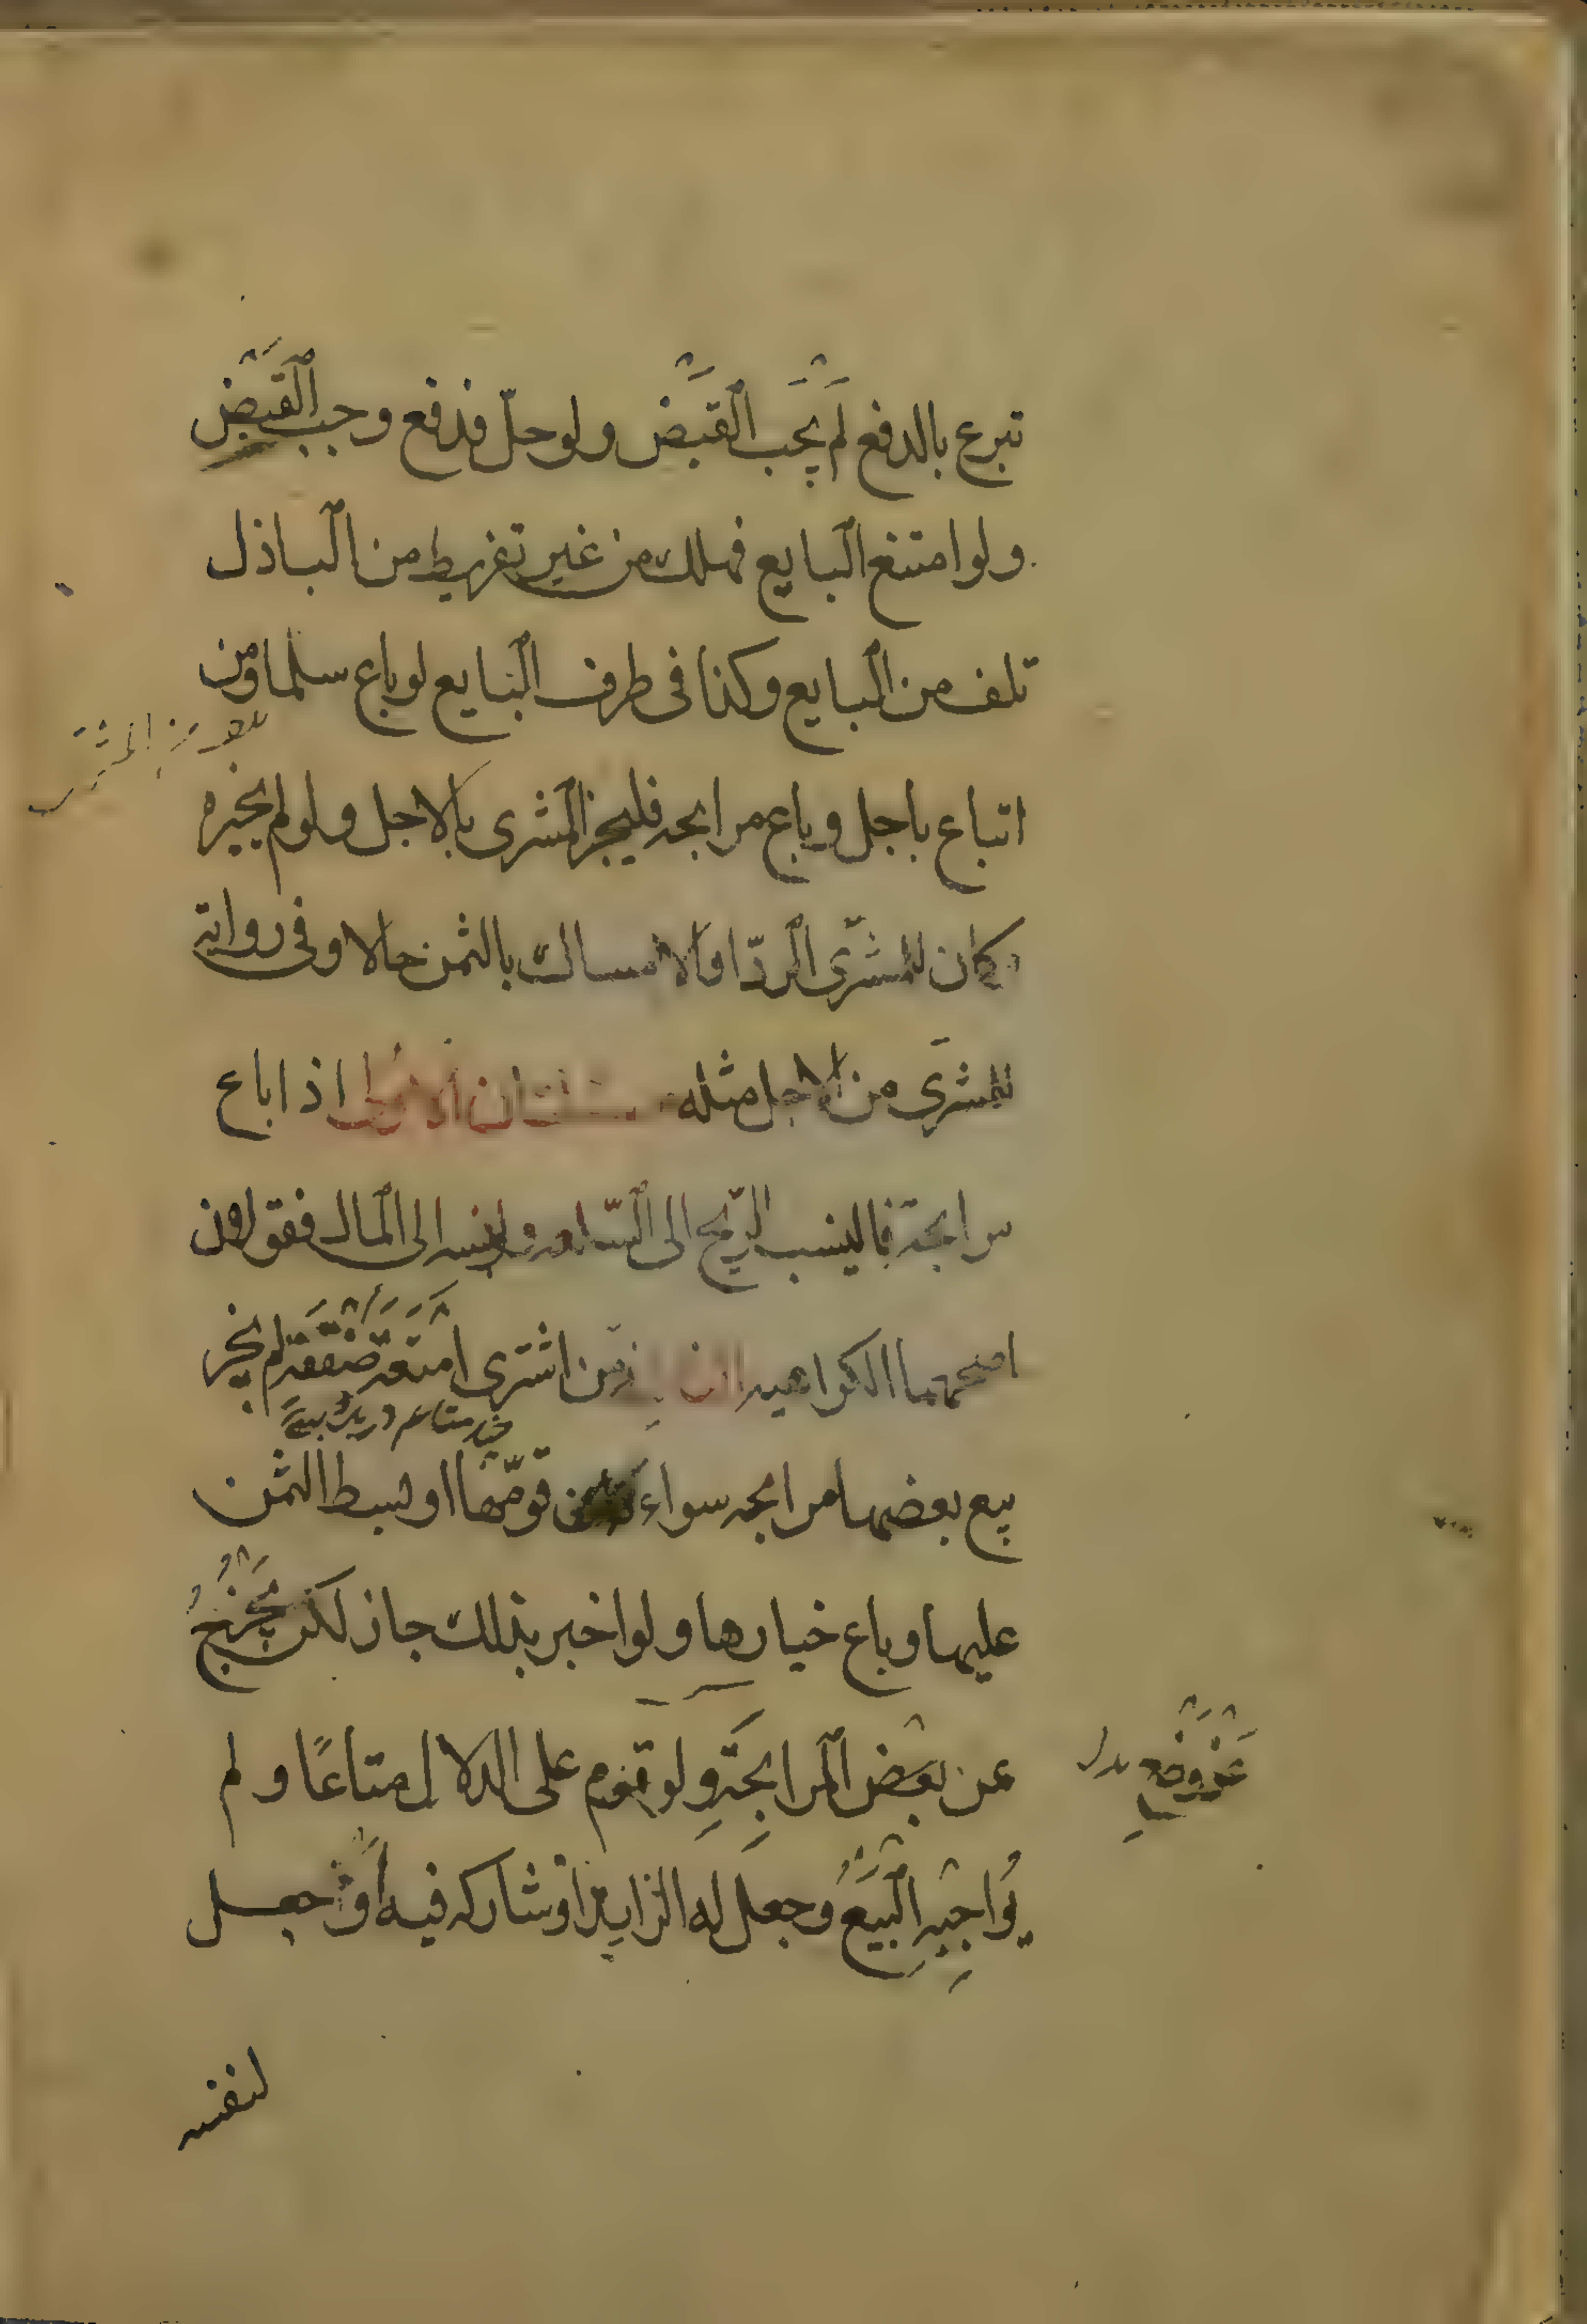 تبرع بالدفع لَمْ يَجِب القَبض ولو حلّ فدفع وجب القَبض
ولو امتنع البايع فهلك من غير تفريط من الباذل
تلف من البايع وكذا فى طرف البايع لو باع سلما ومن
اتباع باجل وباع مرابحه فليخبر المشرى بالاجل ولو لم يخبره
كان للمشترى الردّ او الامساك بالثمن حالا وفى رواية
للمشترى من الاجل مثله مسئلتان الاولى اذا باع
مرابحة فالينسب الربح الى السّلعه ولو نسبه الى المال فقولان
اصحهما الكراهيه الثانية من اشترى امتعة صَفقة لم يجز
چند متاع در یک بیع
بيع بعضها مرابحه سواء قوّمها او بسط الثمن
عليها وباع خيارها ولو اخبر بذلك جاز لكن يخرج
عن بعض المرابحَةِ ولو قوم على الدلال متاعًا ولم
يُواجِبهِ البَيعَ وجعل له الزايد او شاركه فيه او جعل
لنفسه